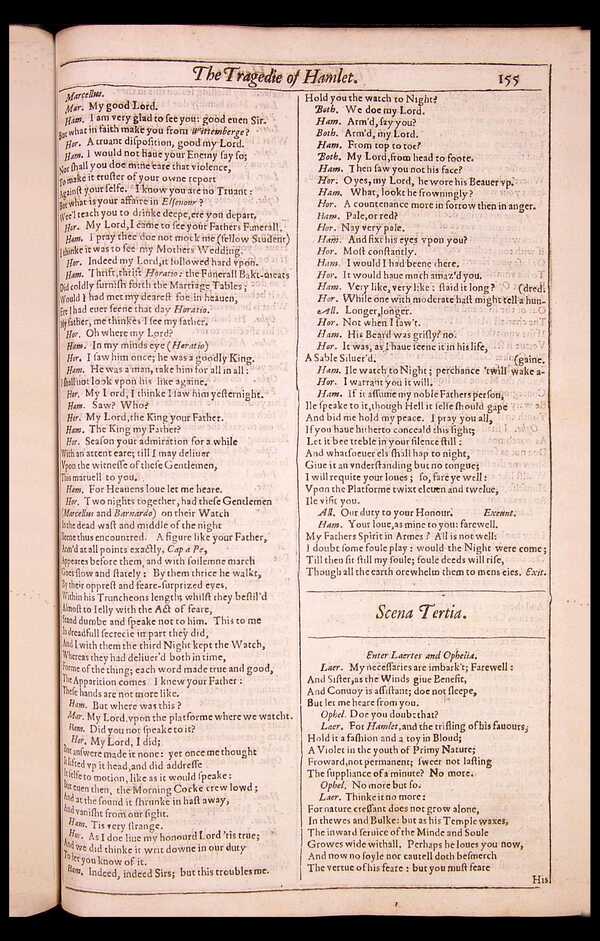 The Tragedie of Hamlet.
155
Marcellus.
Mar. My good Lord.
Ham. I am very glad to see you: good euen Sir.
But what in faith make you from Wittemberge?
Hor. A truant disposition, good my Lord.
Ham. I would not haue your Enemy say so;
Nor shall you doe mine eare that violence,
To make it truster of your owne report
Against your selfe. I know you are no Truant:
But what is your affaire in Elsenour?
Wee'l teach you to drinke deepe, ere you depart.
Hor. My Lord, I came to see your Fathers Funerall.
Ham. I pray thee doe not mock me (fellow Student)
I thinke it was to see my Mothers Wedding.
Hor. Indeed my Lord, it followed hard vpon.
Ham. Thrift, thrift Horatio: the Funerall Bakt-meats
Did coldly furnish forth the Marriage Tables;
Would I had met my dearest foe in heauen,
Ere I had euer seene that day Horatio.
My father, me thinkes I see my father.
Hor. Oh where my Lord?
Ham. In my minds eye (Horatio)
Hor. I saw him once; he was a goodly King.
Ham. He was a man, take him for all in all:
I shall not look vpon his like againe.
Hor. My Lord, I thinke I saw him yesternight.
Ham. Saw? Who?
Hor. My Lord, the King your Father.
Ham. The King my Father?
Hor. Season your admiration for a while
With an attent eare; till I may deliuer
Vpon the witnesse of these Gentlemen,
This maruell to you.
Ham. For Heauens loue let me heare.
Hor. Two nights together, had these Gentlemen
(Marcellus and Barnardo) on their Watch
In the dead wast and middle of the night
Beene thus encountred. A figure like your Father,
Arm'd at all points exactly, Cap a Pe,
Appeares before them, and with sollemne march
Goes slow and stately: By them thrice he walkt,
By their opprest and feare-surprized eyes,
Within his Truncheons length; whilst they bestil'd
Almost to Ielly with the Act of feare,
Stand dumbe and speake not to him. This to me
In dreadfull secrecie in part they did,
And I with them the third Night kept the Watch,
Whereas they had deliuer'd both in time,
Forme of the thing; each word made true and good,
The Apparition comes. I knew your Father:
These hands are not more like.
Ham. But where was this?
Mar. My Lord, vpon the platforme where we watcht.
Ham. Did you not speake to it?
Hor. My Lord, I did;
But answere made it none: yet once me thought
It lifted vp it head, and did addresse
It selfe to motion, like as it would speake:
But euen then, the Morning Cocke crew lowd;
And at the sound it shrunke in hast away,
And vanisht from our sight.
Ham. Tis very strange.
Hor. As I doe liue my honourd Lord 'tis true;
And we did thinke it writ downe in our duty
To let you know of it.
Ham. Indeed, indeed Sirs; but this troubles me.
Hold you the watch to Night?
Both. We doe my Lord.
Ham. Arm'd, say you?
Both. Arm'd, my Lord.
Ham. From top to toe?
Both. My Lord, from head to foote.
Ham. Then saw you not his face?
Hor. O yes, my Lord, he wore his Beauer vp.
Ham. What, lookt he frowningly?
Hor. A countenance more in sorrow then in anger.
Ham. Pale, or red?
Hor. Nay very pale.
Ham. And fixt his eyes vpon you?
Hor. Most constantly.
Ham. I would I had beene there.
Hor. It would haue much amaz'd you.
Ham. Very like, very like: staid it long? (dred.
Hor. While one with moderate hast might tell a hun-
All. Longer, longer.
Hor. Not when I saw't.
Ham. His Beard was grisly? no.
Hor. It was, as I haue seene it in his life,
A Sable Siluer'd. (gaine.
Ham. Ile watch to Night; perchance 'twill wake a-
Hor. I warrant you it will.
Ham. If it assume my noble Fathers person,
Ile speake to it, though Hell it selfe should gape
And bid me hold my peace. I pray you all,
If you haue hitherto conceald this sight;
Let it bee treble in your silence still:
And whatsoeuer els shall hap to night,
Giue it an vnderstanding but no tongue;
I will requite your loues; so, fare ye well:
Vpon the Platforme twixt eleuen and twelue,
Ile visit you.
All. Our duty to your Honour. Exeunt.
Ham. Your loue, as mine to you: farewell.
My Fathers Spirit in Armes? All is not well:
I doubt some foule play: would the Night were come;
Till then sit still my soule; foule deeds will rise,
Though all the earth orewhelm them to mens eies. Exit.
Scena Tertia.
Enter Laertes and Ophelia.
Laer. My necessaries are imbark't; Farewell:
And Sister, as the Winds giue Benefit,
And Conuoy is assistant; doe not sleepe,
But let me heare from you.
Ophel. Doe you doubt that?
Laer. For Hamlet, and the trifling of his fauours,
Hold it a fashion and a toy in Bloud;
A Violet in the youth of Primy Nature;
Froward, not permanent; sweet not lasting
The suppliance of a minute? No more.
Ophel. No more but so.
Laer. Thinke it no more:
For nature cressant does not grow alone,
In thewes and Bulke: but as his Temple waxes,
The inward seruice of the Minde and Soule
Growes wide withall. Perhaps he loues you now,
And now no soyle nor cautell doth besmerch
The vertue of his feare: but you must feare
His